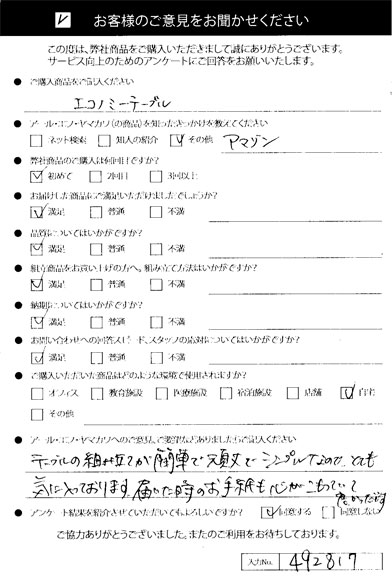 お客様のご意見をお聞かせください
この度は、弊社商品をご購入いただきまして誠にありがとうございます。
サービス向上のためのアンケートにご回答をお願いいたします。
● ご購入商品をご記入ください
エコノミーテーブル
● アール・エフ・ヤマカワ(の商品)を知ったきっかけを教えてください
ネット検索 知人の紹介 その他 アマゾン
● 弊社商品のご購入は何回目ですか?
初めて 2回目 3回以上
● お届けした商品にご満足いただけましたでしょうか?
満足 普通 不満
● 品質についてはいかがですか?
満足 普通 不満
● 組立商品をお買い上げの方へ。組み立て方法はいかがですか?
満足 普通 不満
● 納期についてはいかがですか?
満足 普通 不満
● お問い合わせへの回答スピード、スタッフの応対についてはいかがですか?
満足 普通 不満
● ご購入いただいた商品はどのような環境で使用されますか?
オフィス 教育施設 医療施設 宿泊施設 店舗 自宅
その他
● アール・エフ・ヤマカワへのご意見、ご要望などありましたらご記入ください
テーブルの組み立てが簡単で頑丈でシンプルなので、とても
気に入っております。届いた時のお手紙も心がこもっていて
良かったです
● アンケート結果を紹介させていただいてもよろしいですか? 同意する 同意しない
ご協力ありがとうございました。またのご利用をお待ちしております。
入力No. 492817